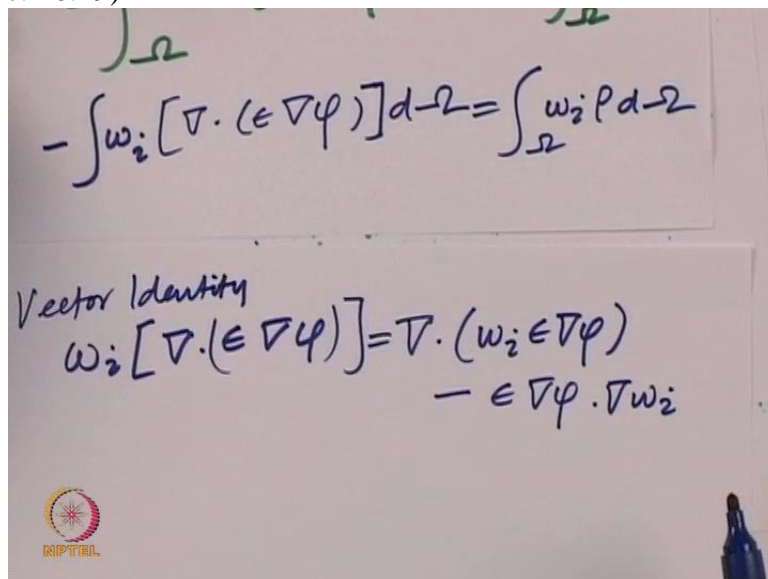 ∫_Ω
- ∫ w_i [∇ · (ϵ ∇φ)] dΩ = ∫_Ω w_i ρ dΩ
Vector Identity
w_i [∇.(ϵ ∇φ)] = ∇ · (w_i ϵ ∇φ)
- ϵ ∇φ . ∇w_i
NPTEL